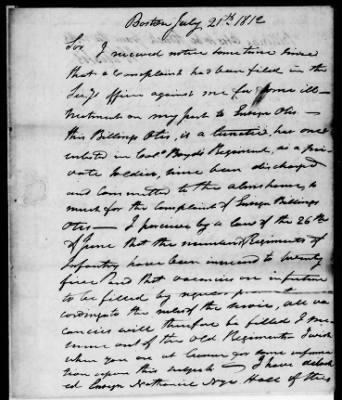 Boston July 21st. 1812
Sir, I received notice sometime since
that a Complaint had been filed in the
Secy's office against me for some ill-
treatment on my part to Ensign Otis —
this Billings Otis, is a lunatic, has once
enlisted in Col. Boyd's Regiment, as a pri-
vate Soldier, since been discharged
and committed to the almshouse, so
much for the complaint of Ensign Billings
Otis — I perceive by a law of the 26th
of June that the number Regiments of
Infantry have been increased to twenty
five and that vacancies in future
to be filled by regular promotion
cordingto the rules of the service, all va-
cancies will therefore be filled I pre-
sume out of the Old Regiments I wish
when you are at leisure for some informa
tion upon this subject — I have detach
ed Ensign Nathaniel Nye Hall of this